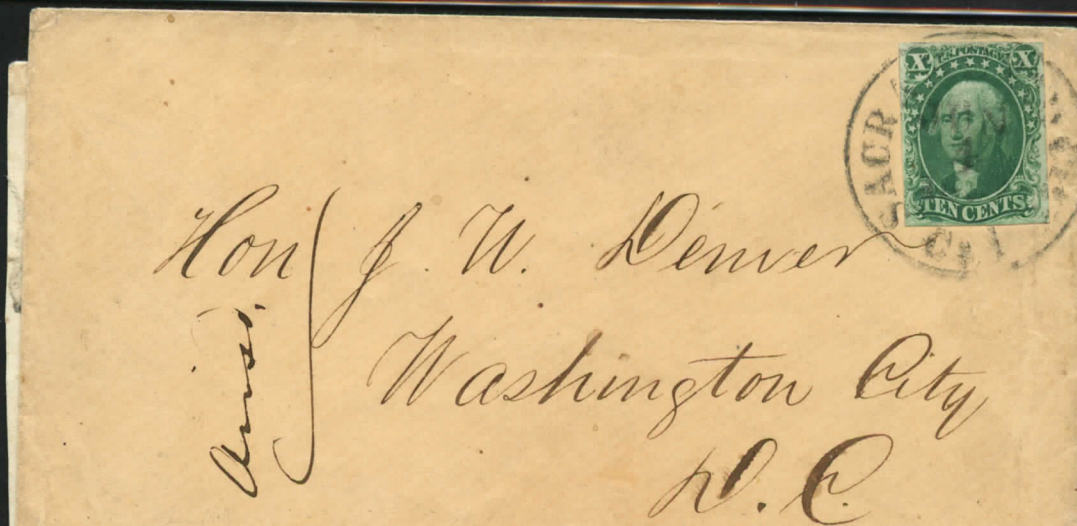 X U.S. POSTAGE X
TEN CENTS
SACR
Hon J. W. Denver
Washington City
D.C.